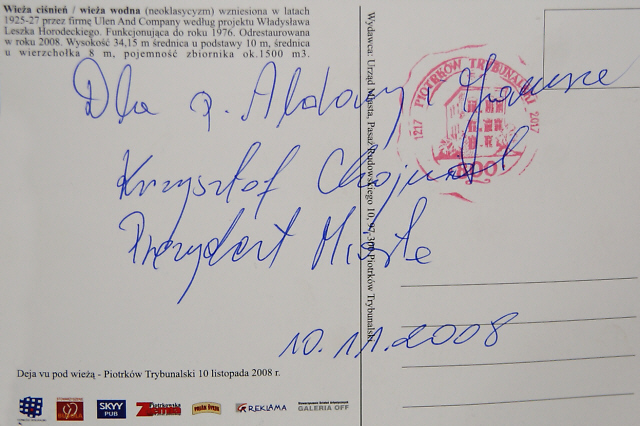 Wieża ciśnień / wieża wodna (neoklasycyzm) wzniesiona w latach
1925-27 przez firmę Ulen And Company według projektu Władysława
Leszka Horodeckiego. Funkcjonująca do roku 1976. Odrestaurowana
w roku 2008. Wysokość 34,15 m średnica u podstawy 10 m, średnica
u wierzchołka 8 m, pojemność zbiornika ok.1500 m3.
Dla p. i
Krzysztof Chojniak
Prezydent Miasta
10.11.2008
Wydawca: Urząd Miasta, Pasaż Rudowskiego 10, 97-300 Piotrków Trybunalski
1217 PIOTRKÓW TRYBUNALSKI 2017
800
Deja vu pod wieżą - Piotrków Trybunalski 10 listopada 2008 r.
SKYY
PUB
REKLAMA
GALERIA OFF